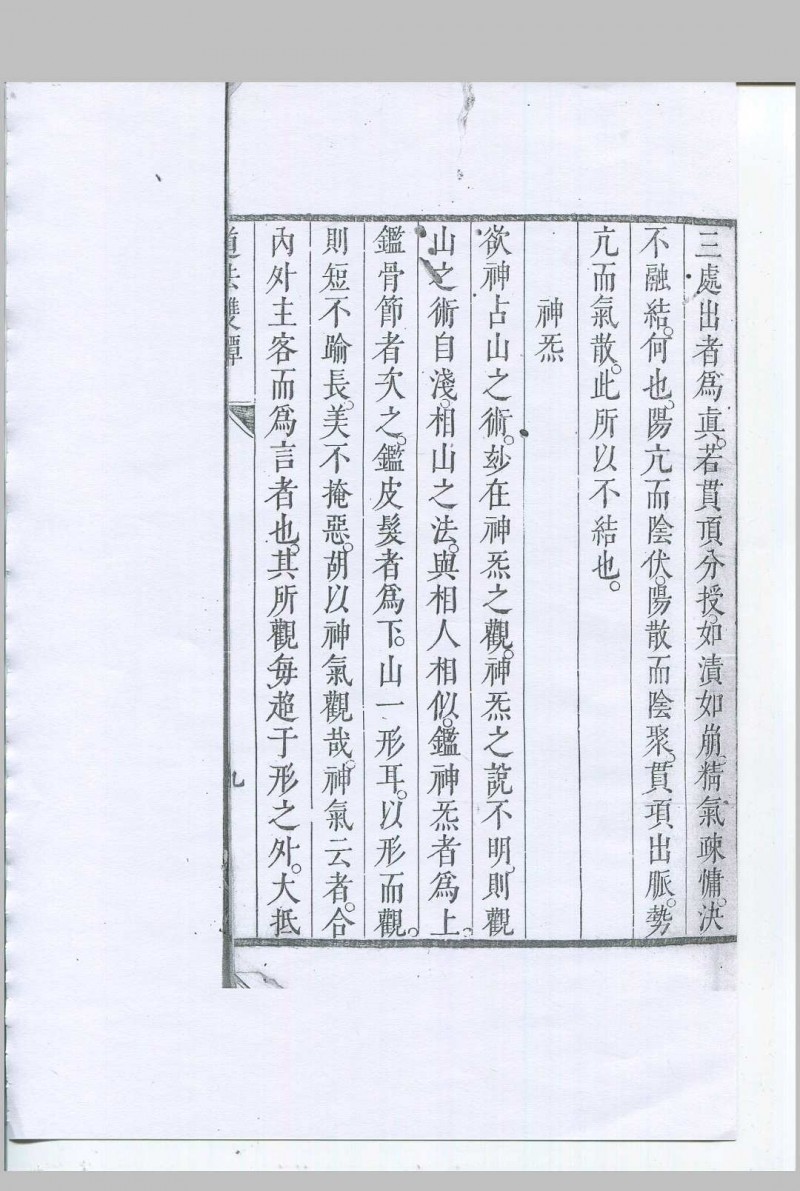 三處出者爲眞。若貫頂分授。如潰如崩。精氣疎慵。決
不融結。何也。陽亢而陰伏。陽散而陰聚。貫項出脈。勢
亢而氣散。此所以不結也。
神炁
欲神占山之術。玅在神炁之觀。神炁之說不明。則觀
山之術自淺。相山之法。與相人相似。鑑神炁者爲上。
鑑骨節者次之。鑑皮髮者爲下。山一形耳。以形而觀。
則短不踰長。美不掩惡。胡以神氣觀哉。神氣云者。合
內外主客而爲言者也。其所觀每超于形之外。大抵
道法雙譚
九